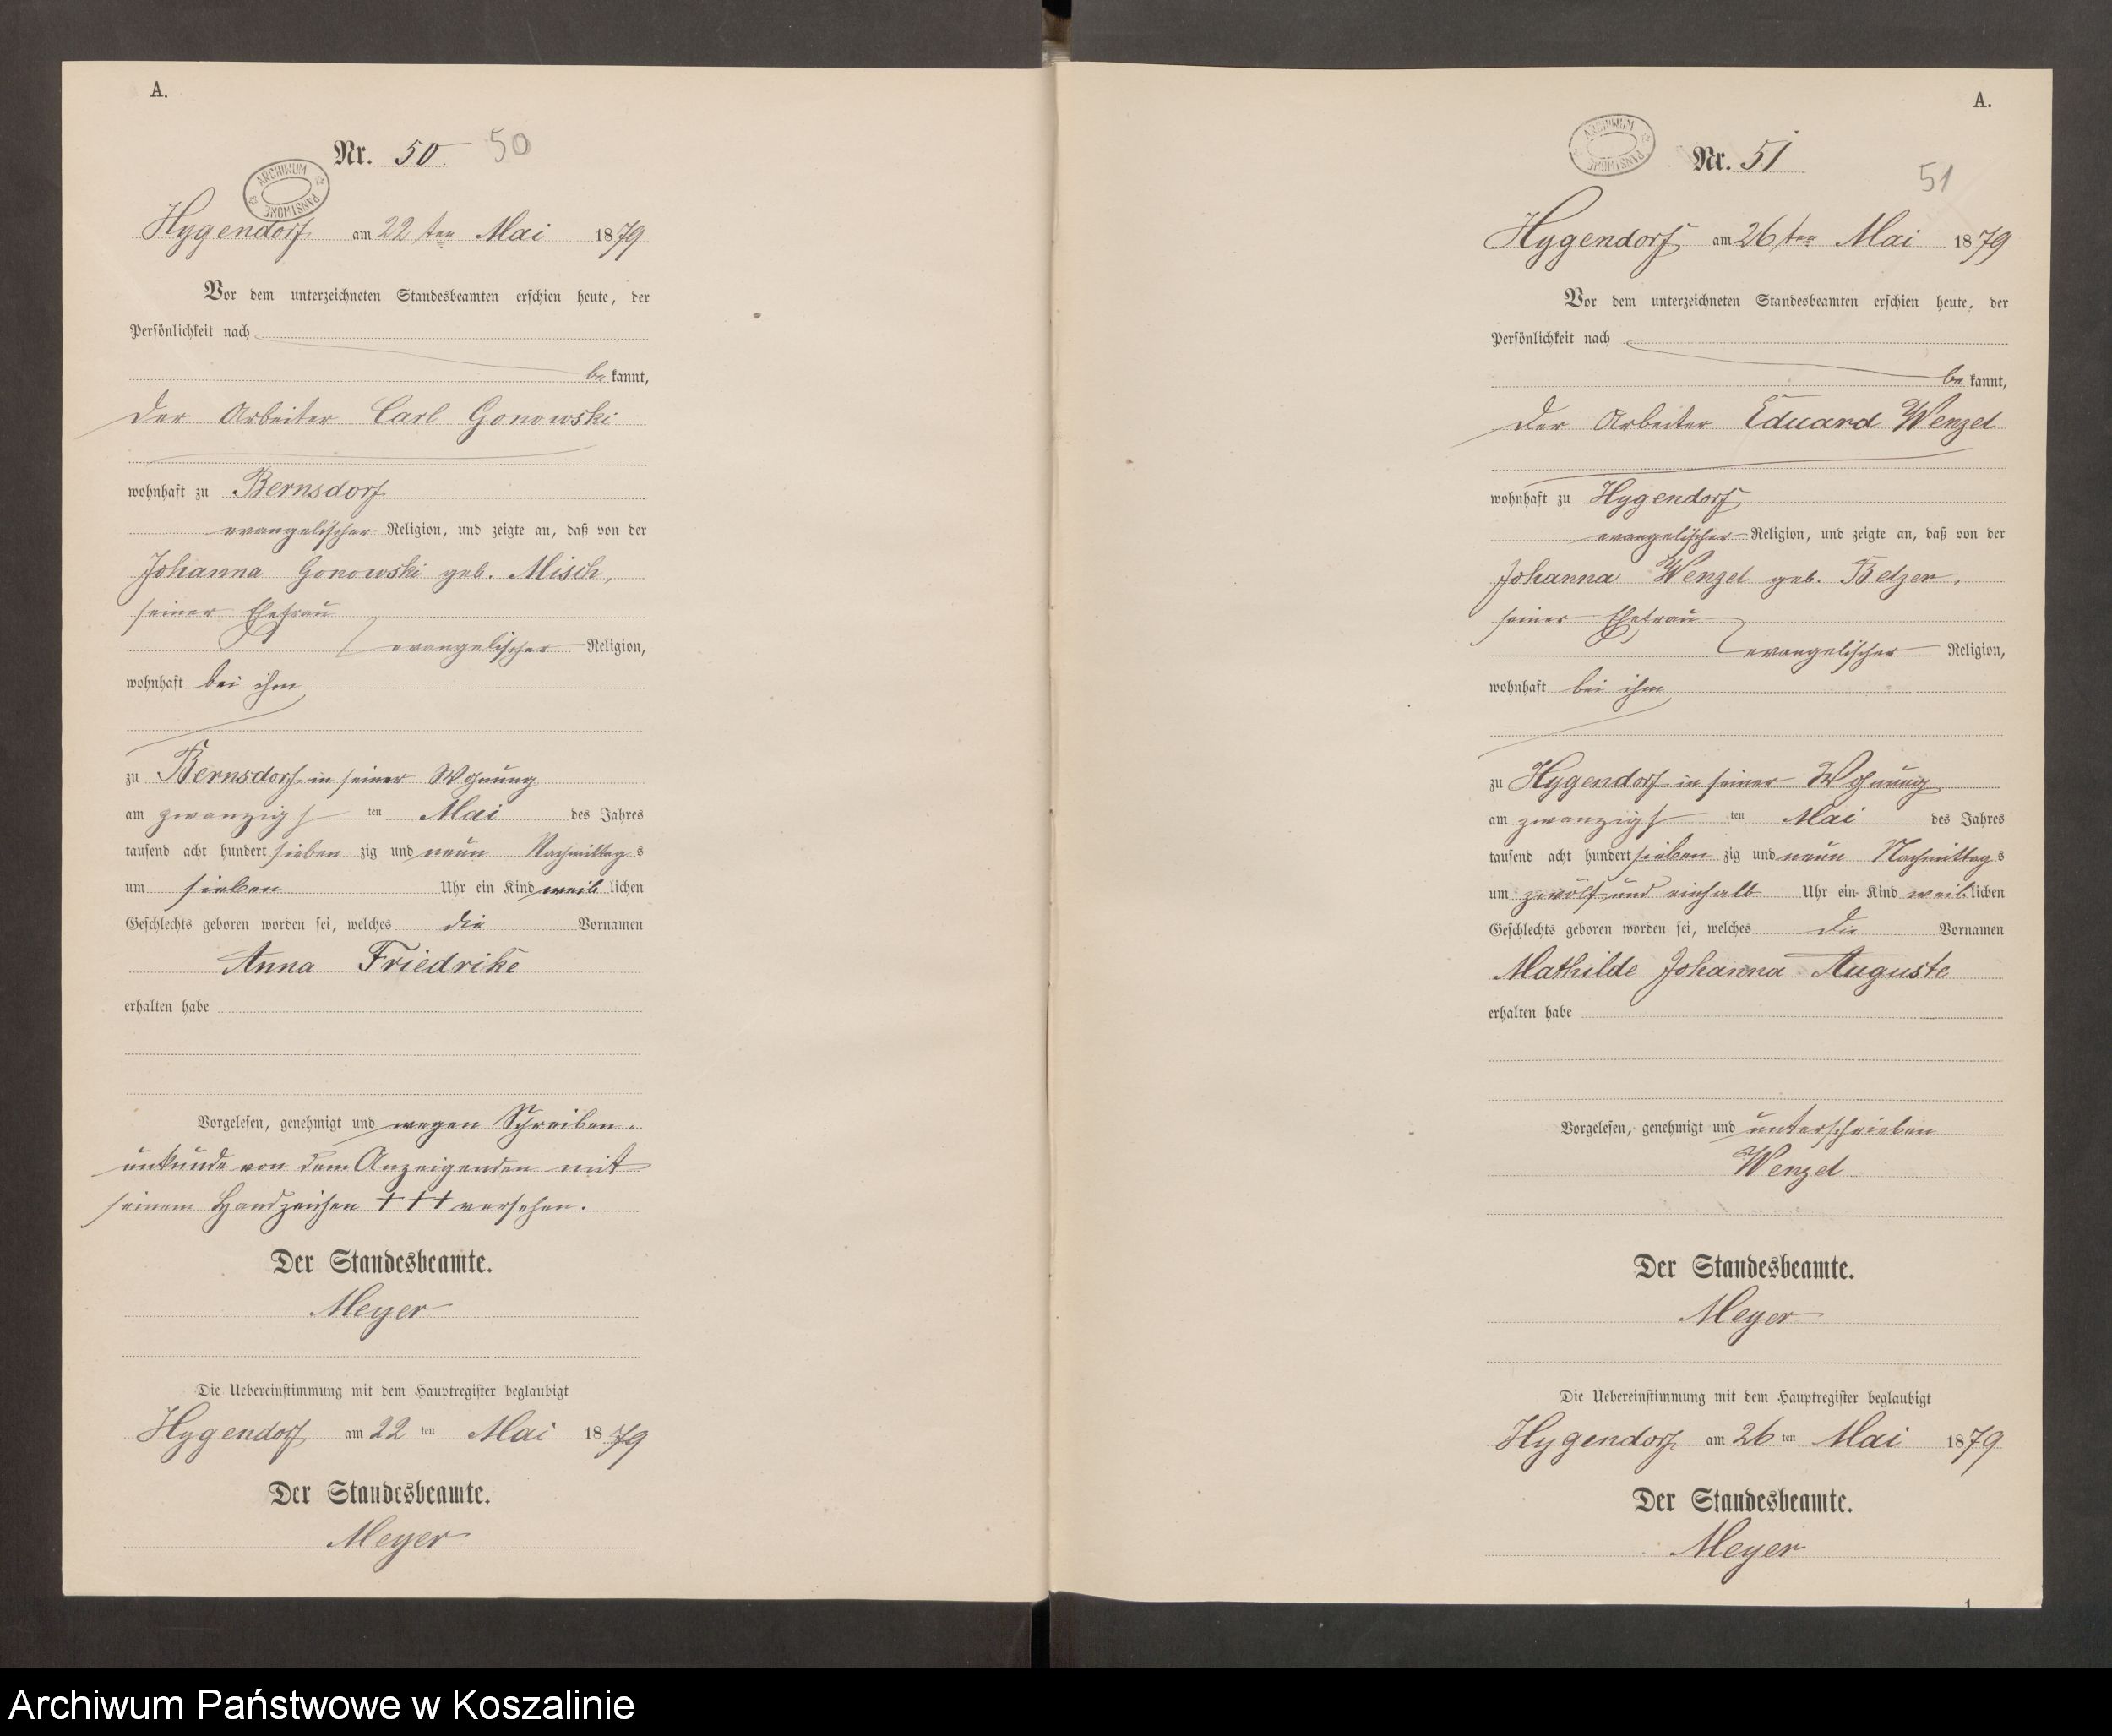 A.
Nr. 50. 50
ARCHIWUM PAŃSTWOWE
Hygendorf am 22 ten Mai 1879
Vor dem unterzeichneten Standesbeamten erschien heute, der
Persönlichkeit nach
bekannt,
der Arbeiter Carl Gonowski
wohnhaft zu Bernsdorf
evangelischer Religion, und zeigte an, daß von der
Johanna Gonowski geb. Misch,
seiner Ehefrau
evangelischer Religion,
wohnhaft bei ihm
zu Bernsdorf in seiner Wohnung
am zwanzigsten Mai des Jahres
tausend acht hundert siebenzig und neun Nachmittags
um sieben Uhr ein Kind weiblichen
Geschlechts geboren worden sei, welches die Vornamen
Anna Friedrike
erhalten habe
Vorgelesen, genehmigt und wegen Schreiben-
unkunde von dem Anzeigenden mit
seinem Handzeichen +++ versehen.
Der Standesbeamte.
Meyer
Die Uebereinstimmung mit dem Hauptregister beglaubigt
Hygendorf am 22 ten Mai 1879
Der Standesbeamte.
Meyer
A.
ARCHIWUM PAŃSTWOWE
Nr. 51
51
Hygendorf am 26 ten Mai 1879
Vor dem unterzeichneten Standesbeamten erschien heute, der
Persönlichkeit nach
bekannt,
der Arbeiter Eduard Wenzel
wohnhaft zu Hygendorf
evangelischer Religion, und zeigte an, daß von der
Johanna Wenzel geb. Belzer,
seiner Ehefrau
evangelischer Religion,
wohnhaft bei ihm
zu Hygendorf in seiner Wohnung
am zwanzigsten Mai des Jahres
tausend acht hundert siebenzig und neun Nachmittags
um zwölf und einhalb Uhr ein Kind weiblichen
Geschlechts geboren worden sei, welches die Vornamen
Mathilde Johanna Auguste
erhalten habe
Vorgelesen, genehmigt und unterschrieben
Wenzel
Der Standesbeamte.
Meyer
Die Uebereinstimmung mit dem Hauptregister beglaubigt
Hygendorf am 26 ten Mai 1879
Der Standesbeamte.
Meyer
1
Archiwum Państwowe w Koszalinie